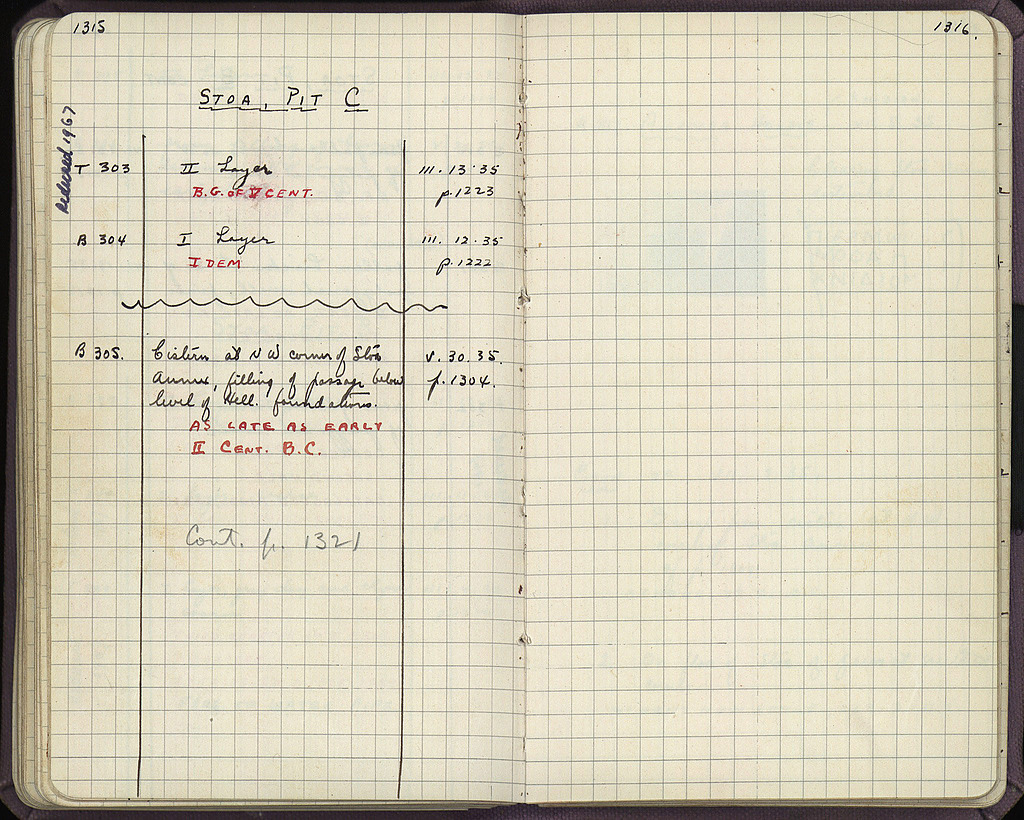 1315
1316.
STOA, PIT C
Reduced 1967
T 303 II Layer III. 13. 35
B.G. OF V CENT. p. 1223
B 304 I Layer III. 12. 35
IDEM p. 1222
B 305. Cistern at NW corner of Stoa V. 30. 35.
Annex, filling of passage below p. 1304.
level of Hell. foundations.
AS LATE AS EARLY
II CENT. B.C.
Cont. p. 1321